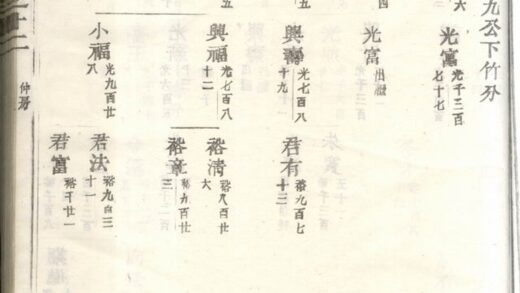 九公下竹分
六
光富 光千三百七十七
四
光富 出繼
五
興壽 光七百八十九
五
興福 光七百八十二
小福 光九百廿八
君有 裕九百七十三
裕清 裕八百廿六
裕章 裕九百廿三
君法 裕九百二十一
君富 裕千廿一
仲房